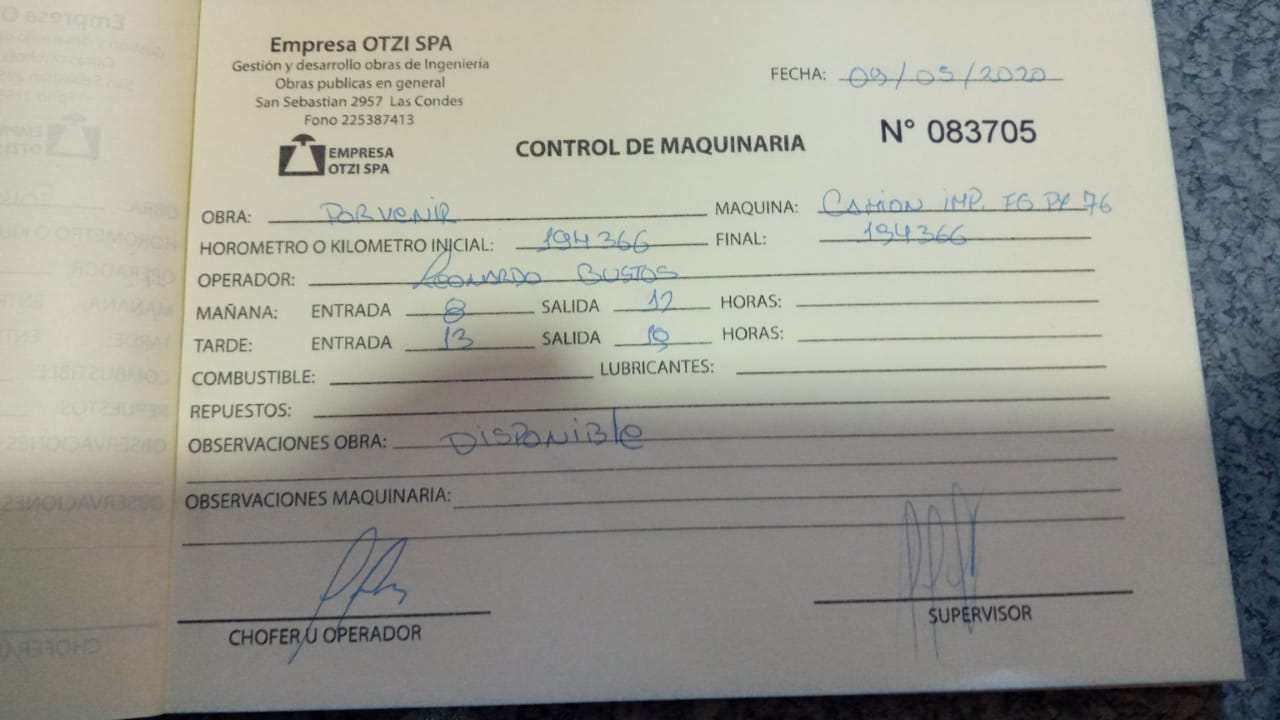 Empresa OTZI SPA
Gestión y desarrollo obras de Ingeniería
Obras publicas en general
San Sebastian 2957 Las Condes
Fono 225387413
EMPRESA
OTZI SPA
CONTROL DE MAQUINARIA
FECHA: 09/05/2020
N° 083705
OBRA: PORVENIR MAQUINA: CAMION IMP. FG PX 76
HOROMETRO O KILOMETRO INICIAL: 194366 FINAL: 194366
OPERADOR: LEONARDO BUSTOS
MAÑANA: ENTRADA 8 SALIDA 12 HORAS:
TARDE: ENTRADA 13 SALIDA 19 HORAS:
COMBUSTIBLE: LUBRICANTES:
REPUESTOS:
OBSERVACIONES OBRA: DISPONIBLE
OBSERVACIONES MAQUINARIA:
CHOFER U OPERADOR
SUPERVISOR